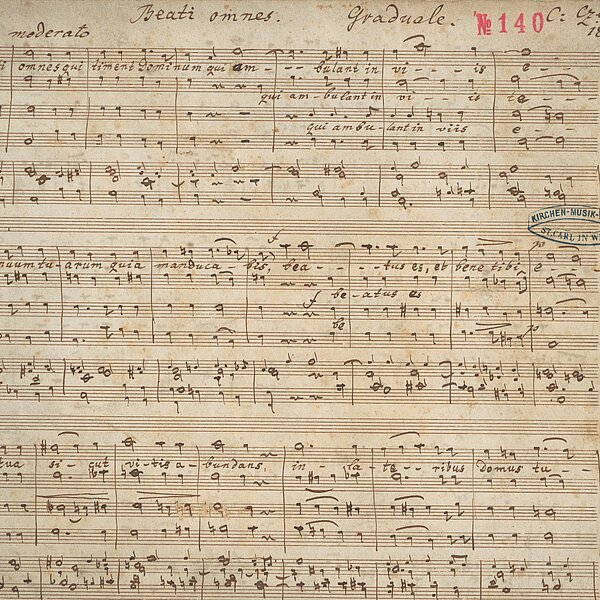 Beati omnes. Graduale. № 140 C: Cz
moderato
i omnes qui timent Dominum qui am - - bulant in vi - - is
qui am - bulant in vi - - is te - - -
qui ambu - lant in viis e - -
KIRCHEN-MUSIK-
ST. CARL IN W
f p
nuum tu - arum quia manduca - bis, bea - - - tus es, et bene tibi e - - -
f be - atus es
be p
tua si - cut vi - tis a - bundans, in - la - te - ribus domus tu - -